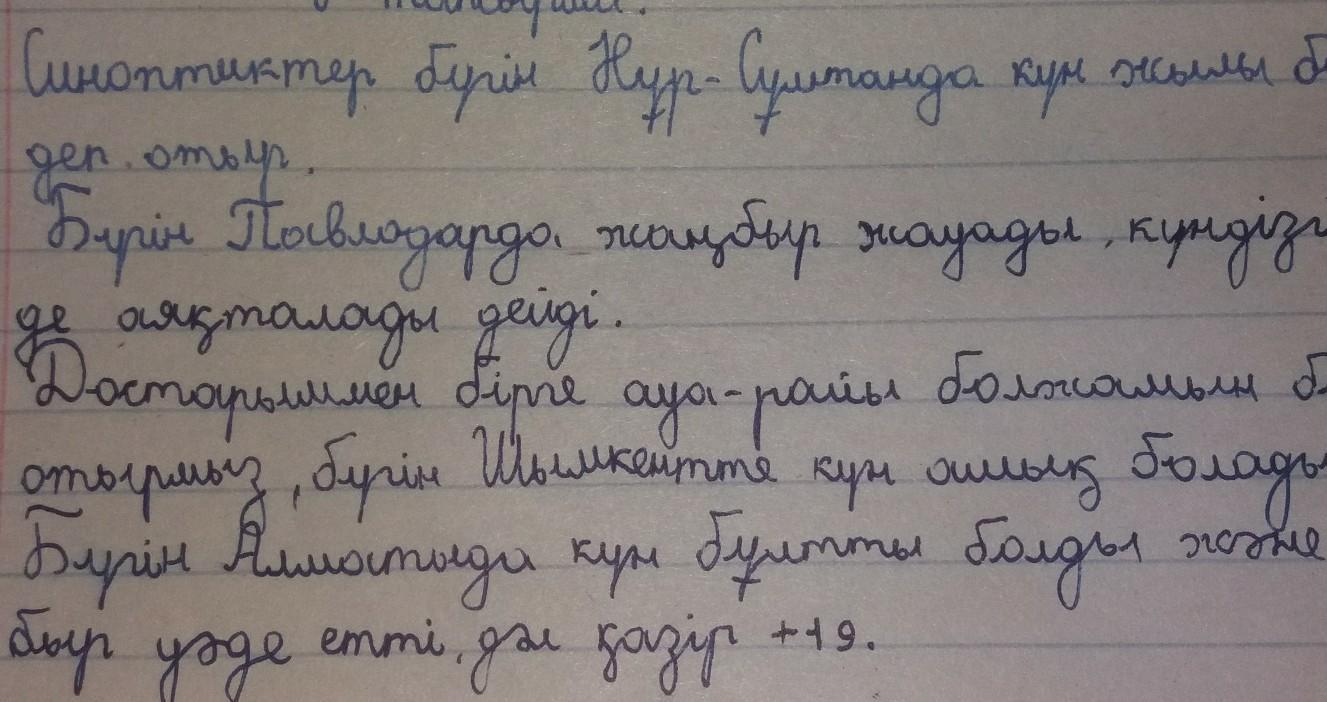 Синоптиктер бүгін Нұр-Сұлтанда күн жылы
деп отыр.
Бүгін Павлодарда жаңбыр жауады, күндізг
де аяқталады дейді.
Достарыммен бірге ауа-райы болжамын
отырмыз, бүгін Шымкентте күн ашық болады
Бүгін Алматыда күн бұлтты болды және
быр уәде етті, дәл қазір +19.